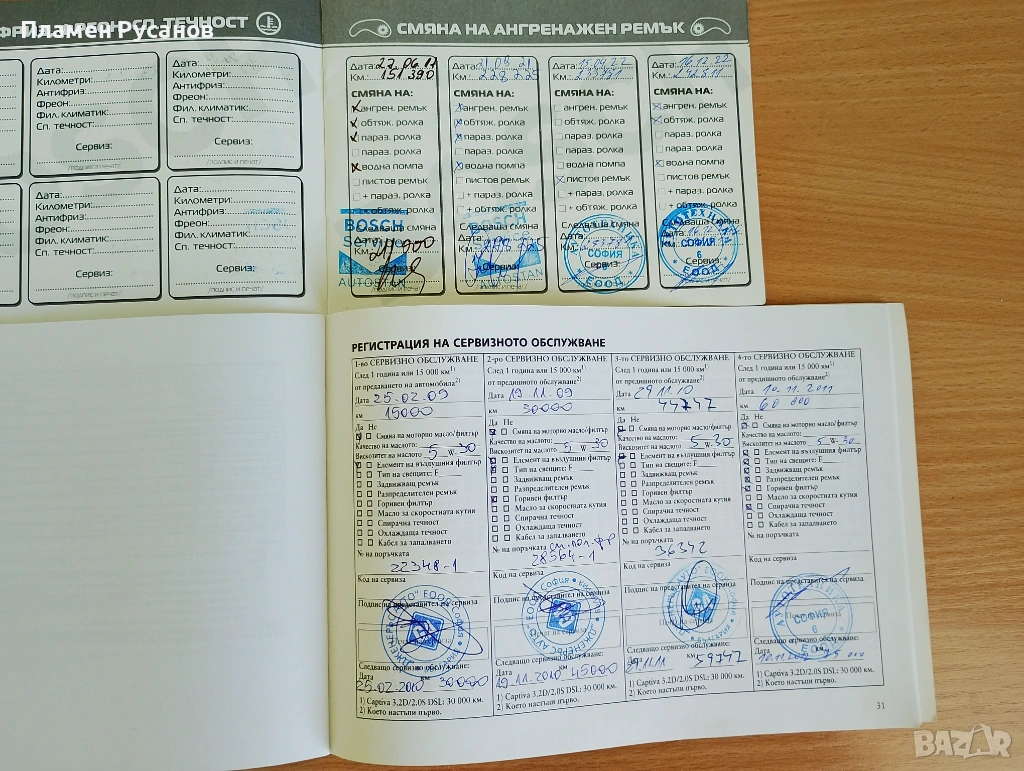 Пламен Русанов
СП. ТЕЧНОСТ
СМЯНА НА АНГРЕНАЖЕН РЕМЪК
Дата:
Километри:
Антифриз:
Фреон:
Фил. климатик:
Сп. течност:
Сервиз:
/подпис и печат/
Дата:
Километри:
Антифриз:
Фреон:
Фил. климатик:
Сп. течност:
Сервиз:
/подпис и печат/
Дата:
Километри:
Антифриз:
Фреон:
Фил. климатик:
Сп. течност:
Сервиз:
/подпис и печат/
Дата:
Километри:
Антифриз:
Фреон:
Фил. климатик:
Сп. течност:
Сервиз:
/подпис и печат/
Дата: 27.06.17
Км.: 151 390
СМЯНА НА:
ангрен. ремък
обтяж. ролка
параз. ролка
параз. ролка
водна помпа
пистов ремък
+ параз. ролка
+ обтяж. ролка
Следваща смяна
BOSCH
Service
Км.: 211 000
AUTOSTAN
Дата: 21.09.21
Км.: 228 725
СМЯНА НА:
ангрен. ремък
обтяж. ролка
параз. ролка
параз. ролка
водна помпа
пистов ремък
+ параз. ролка
+ обтяж. ролка
Следваща смяна
Дата:
Км.:
Сервиз:
AUTOSTAN
Дата: 15.04.22
Км.:
СМЯНА НА:
ангрен. ремък
обтяж. ролка
параз. ролка
параз. ролка
водна помпа
пистов ремък
+ параз. ролка
+ обтяж. ролка
Следваща смяна
Дата:
Км.:
СОФИЯ
Сервиз:
ЕООД
Дата: 16.12.22
Км.: 242811
СМЯНА НА:
ангрен. ремък
обтяж. ролка
параз. ролка
параз. ролка
водна помпа
пистов ремък
+ параз. ролка
+ обтяж. ролка
Следваща смяна
СОФИЯ
Сервиз:
ЕООД
РЕГИСТРАЦИЯ НА СЕРВИЗНОТО ОБСЛУЖВАНЕ
1-во СЕРВИЗНО ОБСЛУЖВАНЕ
След 1 година или 15 000 км1)
от предаването на автомобила2)
Дата 25.02.09
км 15000
Да Не
Смяна на моторно масло/филтър
Качество на маслото:
Вискозитет на маслото: 5 W- 30
Елемент на въздушния филтър
Тип на свещите: F
Задвижващ ремък
Разпределителен ремък
Горивен филтър
Масло за скоростната кутия
Спирачна течност
Охлаждаща течност
Кабел за запалването
№ на поръчката
22348-1
Код на сервиза
Подпис на представител на сервиза
Следващо сервизно обслужване:
Дата км
25.02.2010 30000
1) Captiva 3.2D/2.0S DSL: 30 000 км.
2) Което настъпи първо.
2-ро СЕРВИЗНО ОБСЛУЖВАНЕ
След 1 година или 15 000 км1)
от предишното обслужване2)
Дата 19.11.09
км 30000
Да Не
Смяна на моторно масло/филтър
Качество на маслото:
Вискозитет на маслото: 5 W- 30
Елемент на въздушния филтър
Тип на свещите: F
Задвижващ ремък
Разпределителен ремък
Горивен филтър
Масло за скоростната кутия
Спирачна течност
Охлаждаща течност
Кабел за запалването
№ на поръчката
28564-1
Код на сервиза
Подпис на представител на сервиза
Следващо сервизно обслужване:
Дата км
19.11.2010 45000
1) Captiva 3.2D/2.0S DSL: 30 000 км.
2) Което настъпи първо.
3-то СЕРВИЗНО ОБСЛУЖВАНЕ
След 1 година или 15 000 км1)
от предишното обслужване2)
Дата 29.11.10
км 44747
Да Не
Смяна на моторно масло/филтър
Качество на маслото:
Вискозитет на маслото: 5 W- 30
Елемент на въздушния филтър
Тип на свещите: F
Задвижващ ремък
Разпределителен ремък
Горивен филтър
Масло за скоростната кутия
Спирачна течност
Охлаждаща течност
Кабел за запалването
№ на поръчката
36342
Код на сервиза
Подпис на представител на сервиза
Следващо сервизно обслужване:
Дата км
29.11.11 59747
1) Captiva 3.2D/2.0S DSL: 30 000 км.
2) Което настъпи първо.
4-то СЕРВИЗНО ОБСЛУЖВАНЕ
След 1 година или 15 000 км1)
от предишното обслужване2)
Дата 10.11.2011
км 60 000
Да Не
Смяна на моторно масло/филтър
Качество на маслото:
Вискозитет на маслото: 5 W- 30
Елемент на въздушния филтър
Тип на свещите: F
Задвижващ ремък
Разпределителен ремък
Горивен филтър
Масло за скоростната кутия
Спирачна течност
Охлаждаща течност
Кабел за запалването
№ на поръчката
Код на сервиза
Подпис на представител на сервиза
СОФИЯ
6
ЕООД
Следващо сервизно обслужване:
Дата км
1) Captiva 3.2D/2.0S DSL: 30 000 км.
2) Което настъпи първо.
31
BAZAR